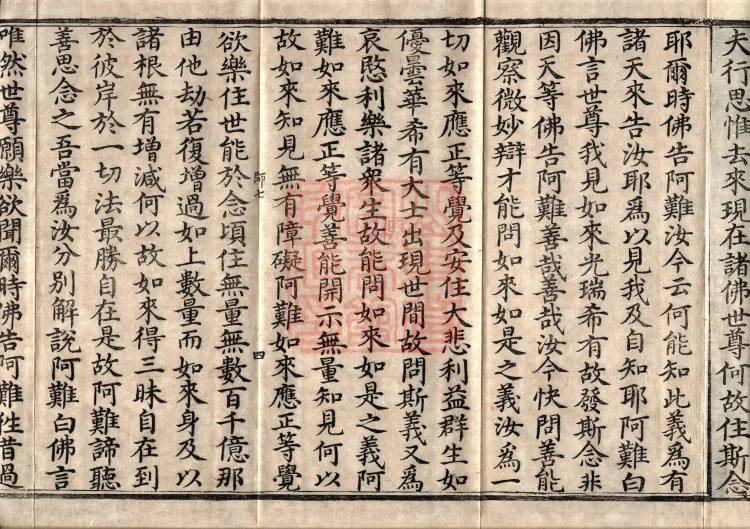 夫行思惟去來現在諸佛世尊何故住斯念
耶爾時佛告阿難汝今云何能知此義爲有
諸天來告汝耶爲以見我及自知耶阿難白
佛言世尊我見如來光瑞希有故發斯念非
因天等佛告阿難善哉善哉汝今快問善能
觀察微妙辯才能問如來如是之義汝爲一
切如來應正等覺及安住大悲利益群生如
優曇華希有大士出現世間故問斯義又爲
哀愍利樂諸衆生故能問如來如是之義阿
難如來應正等覺善能開示無量知見何以
故如來知見無有障礙阿難如來應正等覺
師七
四
欲樂住世能於念頃住無量無數百千億那
由他劫若復增過如上數量而如來身及以
諸根無有增減何以故如來得三昧自在到
於彼岸於一切法最勝自在是故阿難諦聽
善思念之吾當爲汝分別解說阿難白佛言
唯然世尊願樂欲聞爾時佛告阿難往昔過